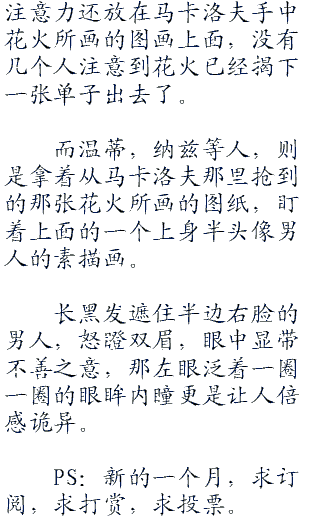 注意力还放在马卡洛夫手中
花火所画的图画上面，没有
几个人注意到花火已经揭下
一张单子出去了。
而温蒂，纳兹等人，则
是拿着从马卡洛夫那里抢到
的那张花火所画的图纸，盯
着上面的一个上身半头像男
人的素描画。
长黑发遮住半边右脸的
男人，怒澄双眉，眼中显带
不善之意，那左眼泛着一圈
一圈的眼眸内瞳更是让人倍
感诡异。
PS：新的一个月，求订
阅，求打赏，求投票。